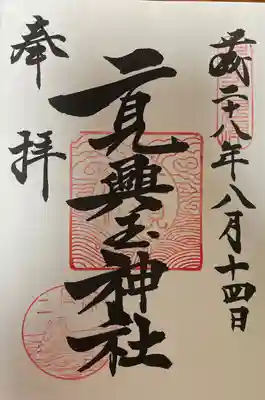 平成二十八年八月十四日
二見興玉神社
奉拝